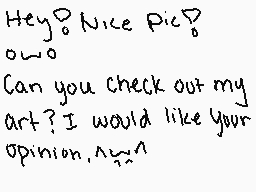 Hey! Nice pic!
owo
Can you check out my
art? I would like your
opinion. ^w^